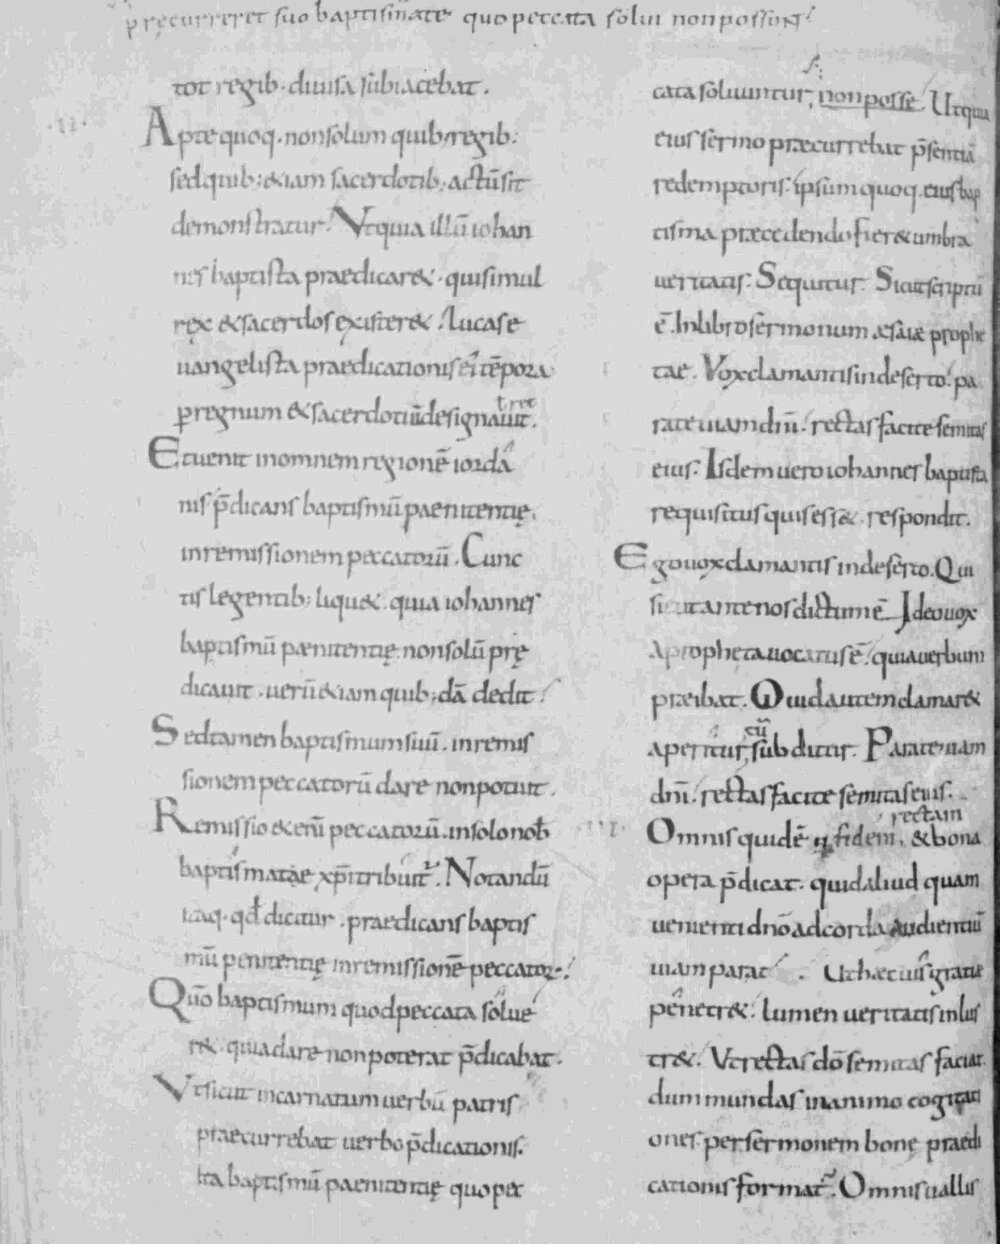 pręcurreret suo baptismate quo peccata solui non possunt
tot regib· diuisa subiacebat.
·II·
Apte quoq· non solum quib; regib;
sed quib; &iam sacerdotib; actū sit
demonstratur. Vt quia illū iohan
nes baptista praedicar& · qui simul
rex & sacerdos exister&. lucas e
uangelista praedicationis ei tēpora
p regnum & sacerdotiū designauit.
Et uenit in omnem regionē iorda
nis p̄dicans baptismū paenitentię.
in remissionem peccatorū. Cunc
tis legentib; liqu&· quia iohannes
baptismū paenitentię non solū prę
dicauit · uerū &iam quib;dā dedit.
Sed tamen baptismum suū · in remis
sionem peccatorū dare non potuit.
Remissio &eni peccatorū · in solo nob
baptismatae xp̄i tribuit~. Notandū
itaq· qd dicitur · praedicans baptis
mū penitentię in remissionē peccator
Quō baptismum quod peccata solue
r& · quia dare non poterat p̄dicabat.
Vt sicut incarnatum uerbū patris
praecurrebat uerbo p̄dicationis.
Ita baptismū paenitentię quo pec
cata soluuntur, non posse. Ut quia
eius sermo praecurrebat p̄sentiā
redemptoris. ipsum quoq· eius bap
tisma praecedendo fier& umbra
ueritatis. Sequitur. Sicut scriptū
ē. In libro sermonum aesaiae prophe
tae. Vox clamantis in deserto. pa
rate uiam dn̄i. rectas facite semitas
eius. Isdem uero iohannes baptista
requisitus quis ess& · respondit.
Ego uox clamantis in deserto. Qui
sicut ante nos dictum ē. Ideo uox
a propheta uocatus ē. quia uerbum
praeibat. Quid autem clamar&
cū
aperitur, sub ditur. Parate uiam
dn̄i. rectas facite semitas eius.
rectam
·III· Omnis qui dē q fidem, & bona
opera p̄dicat. quid aliud quam
uenienti dn̄o ad corda audientiū
uiam parat. Ut haec uis gratiae
penetr&. lumen ueritatis inlus
tr&. Vt rectas dō semitas faciat.
dum mundas in animo cogitati
ones per sermonem bone praedi
cationis format~. Omnis uallis